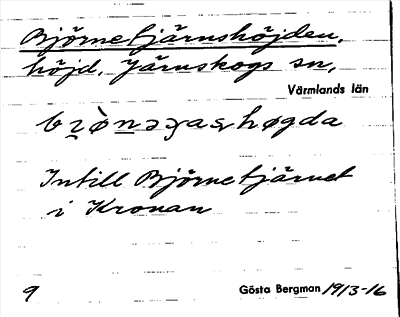 Björnetjärnshöjden,
höjd, Järnskogs sn,
Värmlands län
Intill Björnetjärnet
i Kronan
9
Gösta Bergman 1913-16